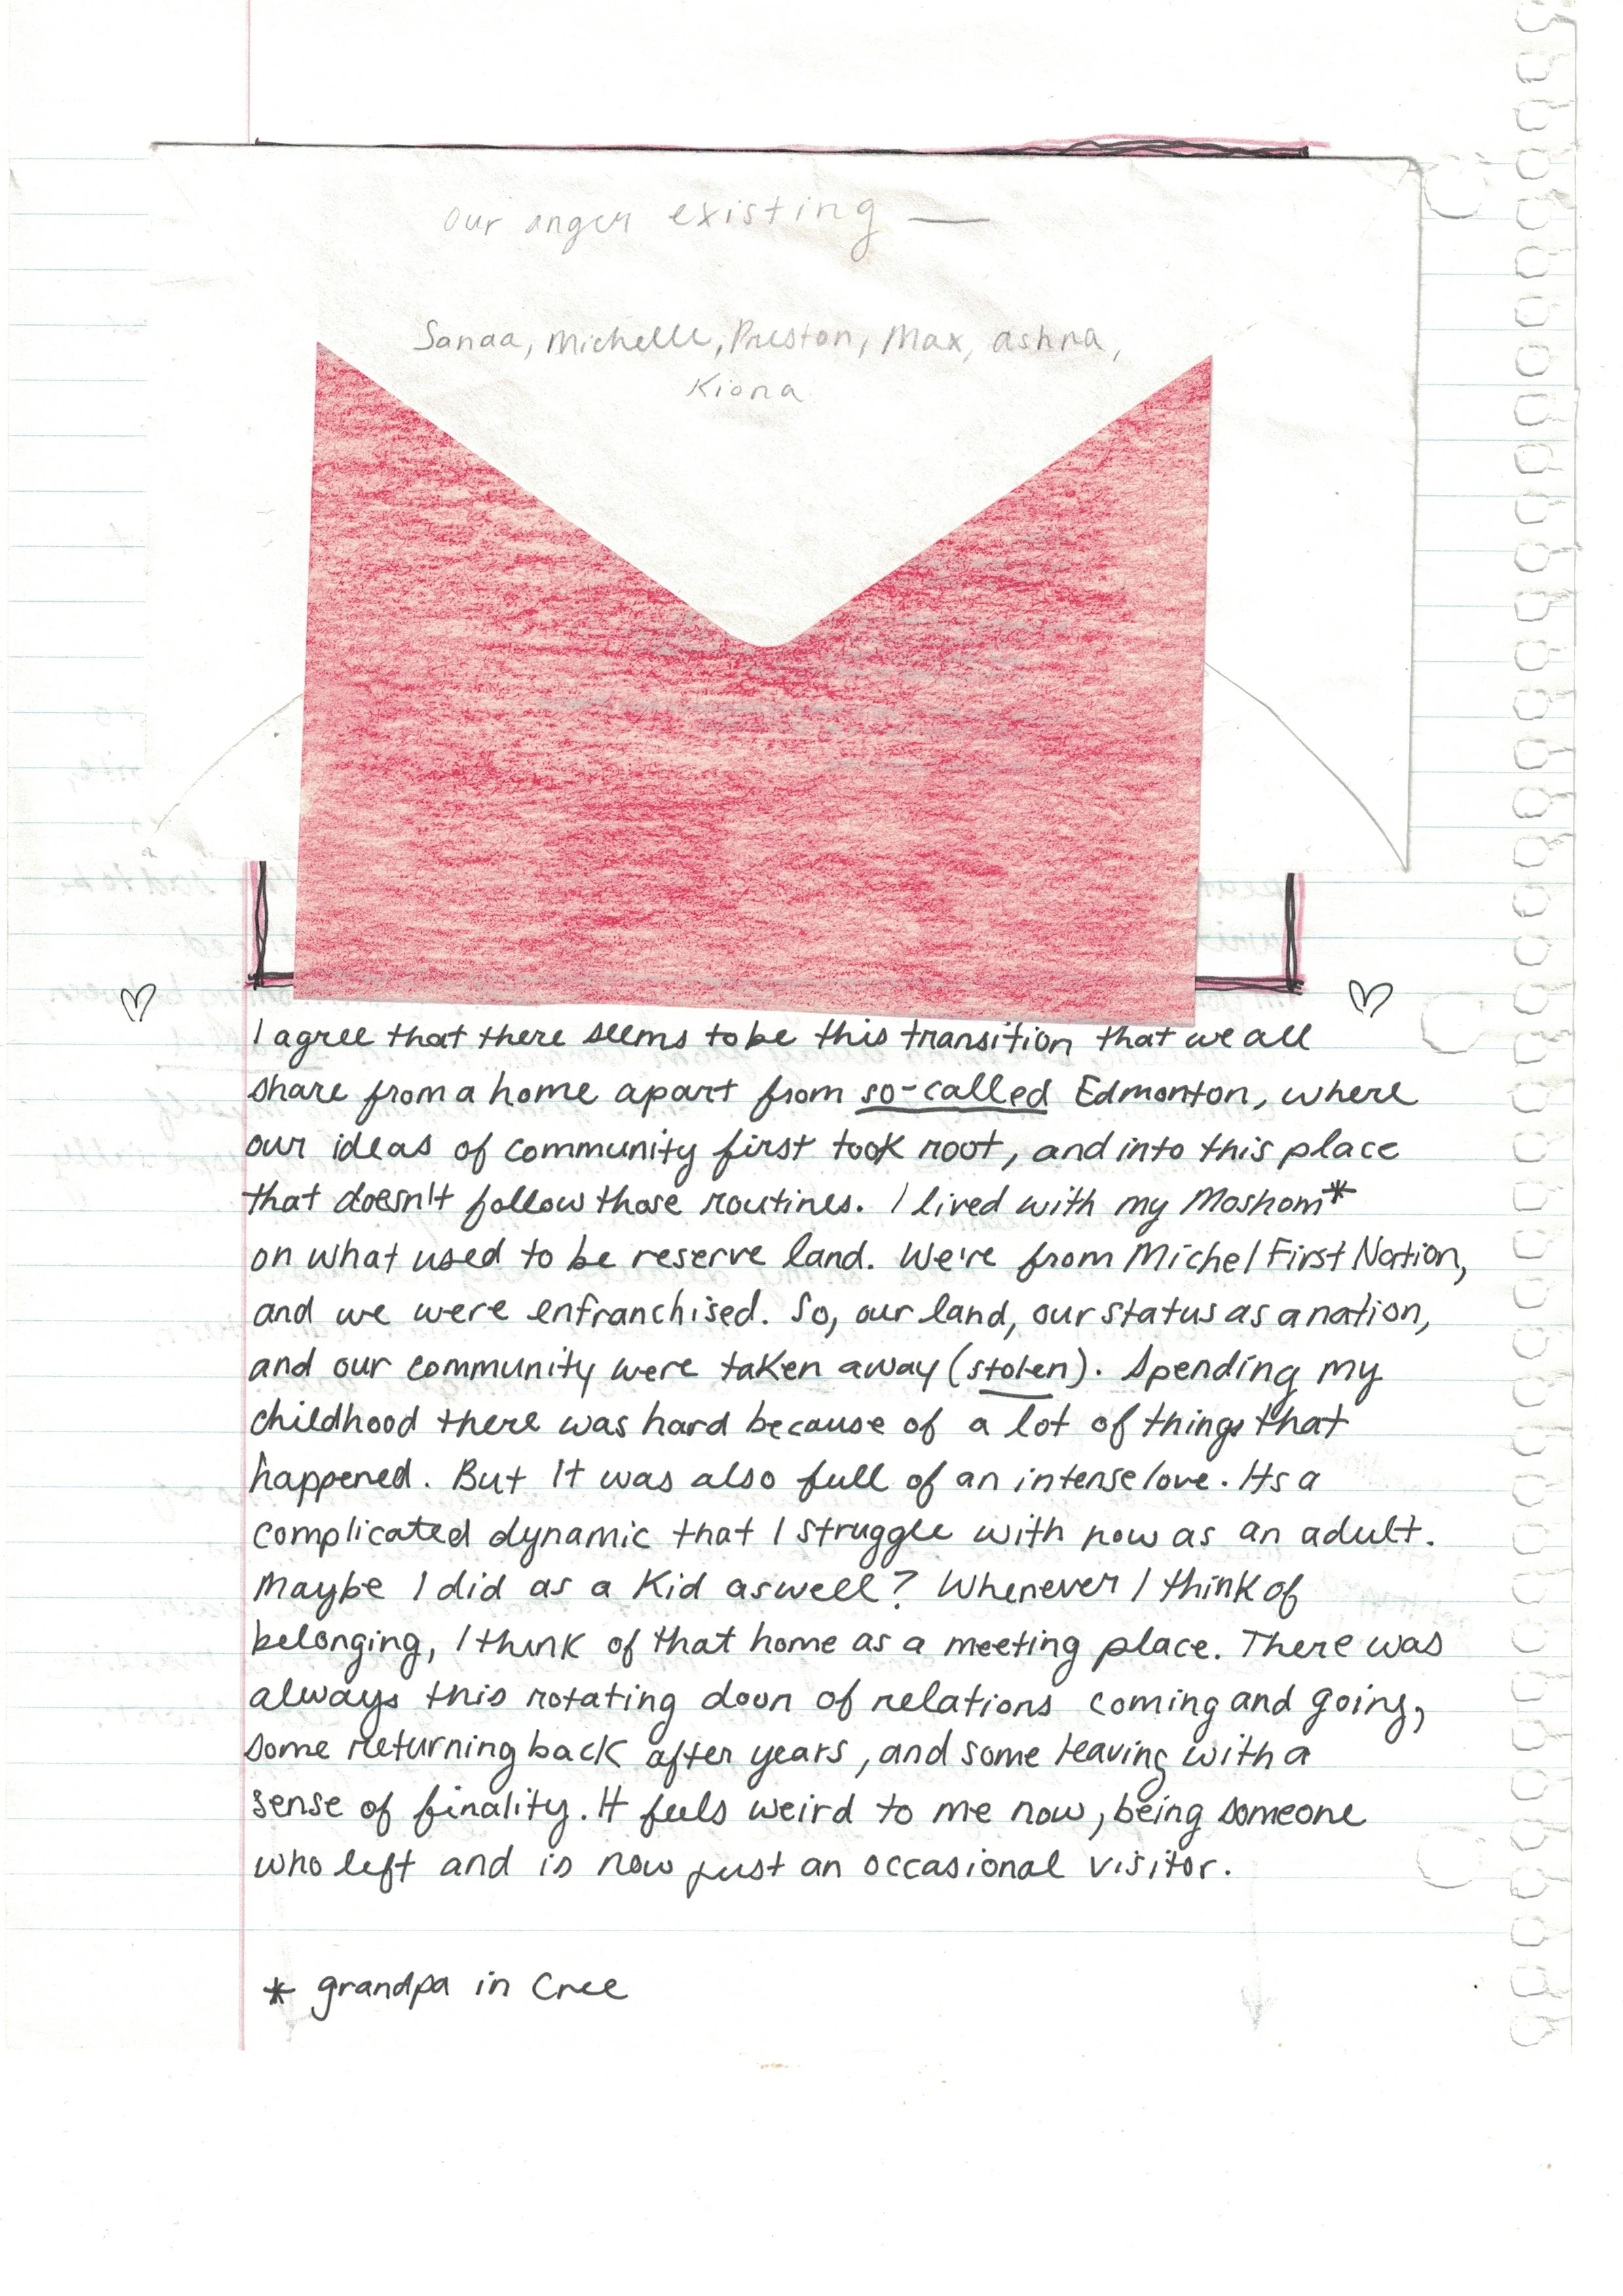 our anger existing —
Sanaa, Michelle, Preston, Max, ashna,
Kiona
I agree that there seems to be this transition that we all
share from a home apart from so-called Edmonton, where
our ideas of community first took root, and into this place
that doesn't follow those routines. I lived with my Moshom*
on what used to be reserve land. We're from Michel First Nation,
and we were enfranchised. So, our land, our status as a nation,
and our community were taken away (stolen). Spending my
childhood there was hard because of a lot of things that
happened. But It was also full of an intense love. Its a
complicated dynamic that I struggle with now as an adult.
Maybe I did as a Kid aswell? Whenever I think of
belonging, I think of that home as a meeting place. There was
always this rotating door of relations coming and going,
some returning back after years, and some leaving with a
sense of finality. It feels weird to me now, being someone
who left and is now just an occasional visitor.
* grandpa in Cree